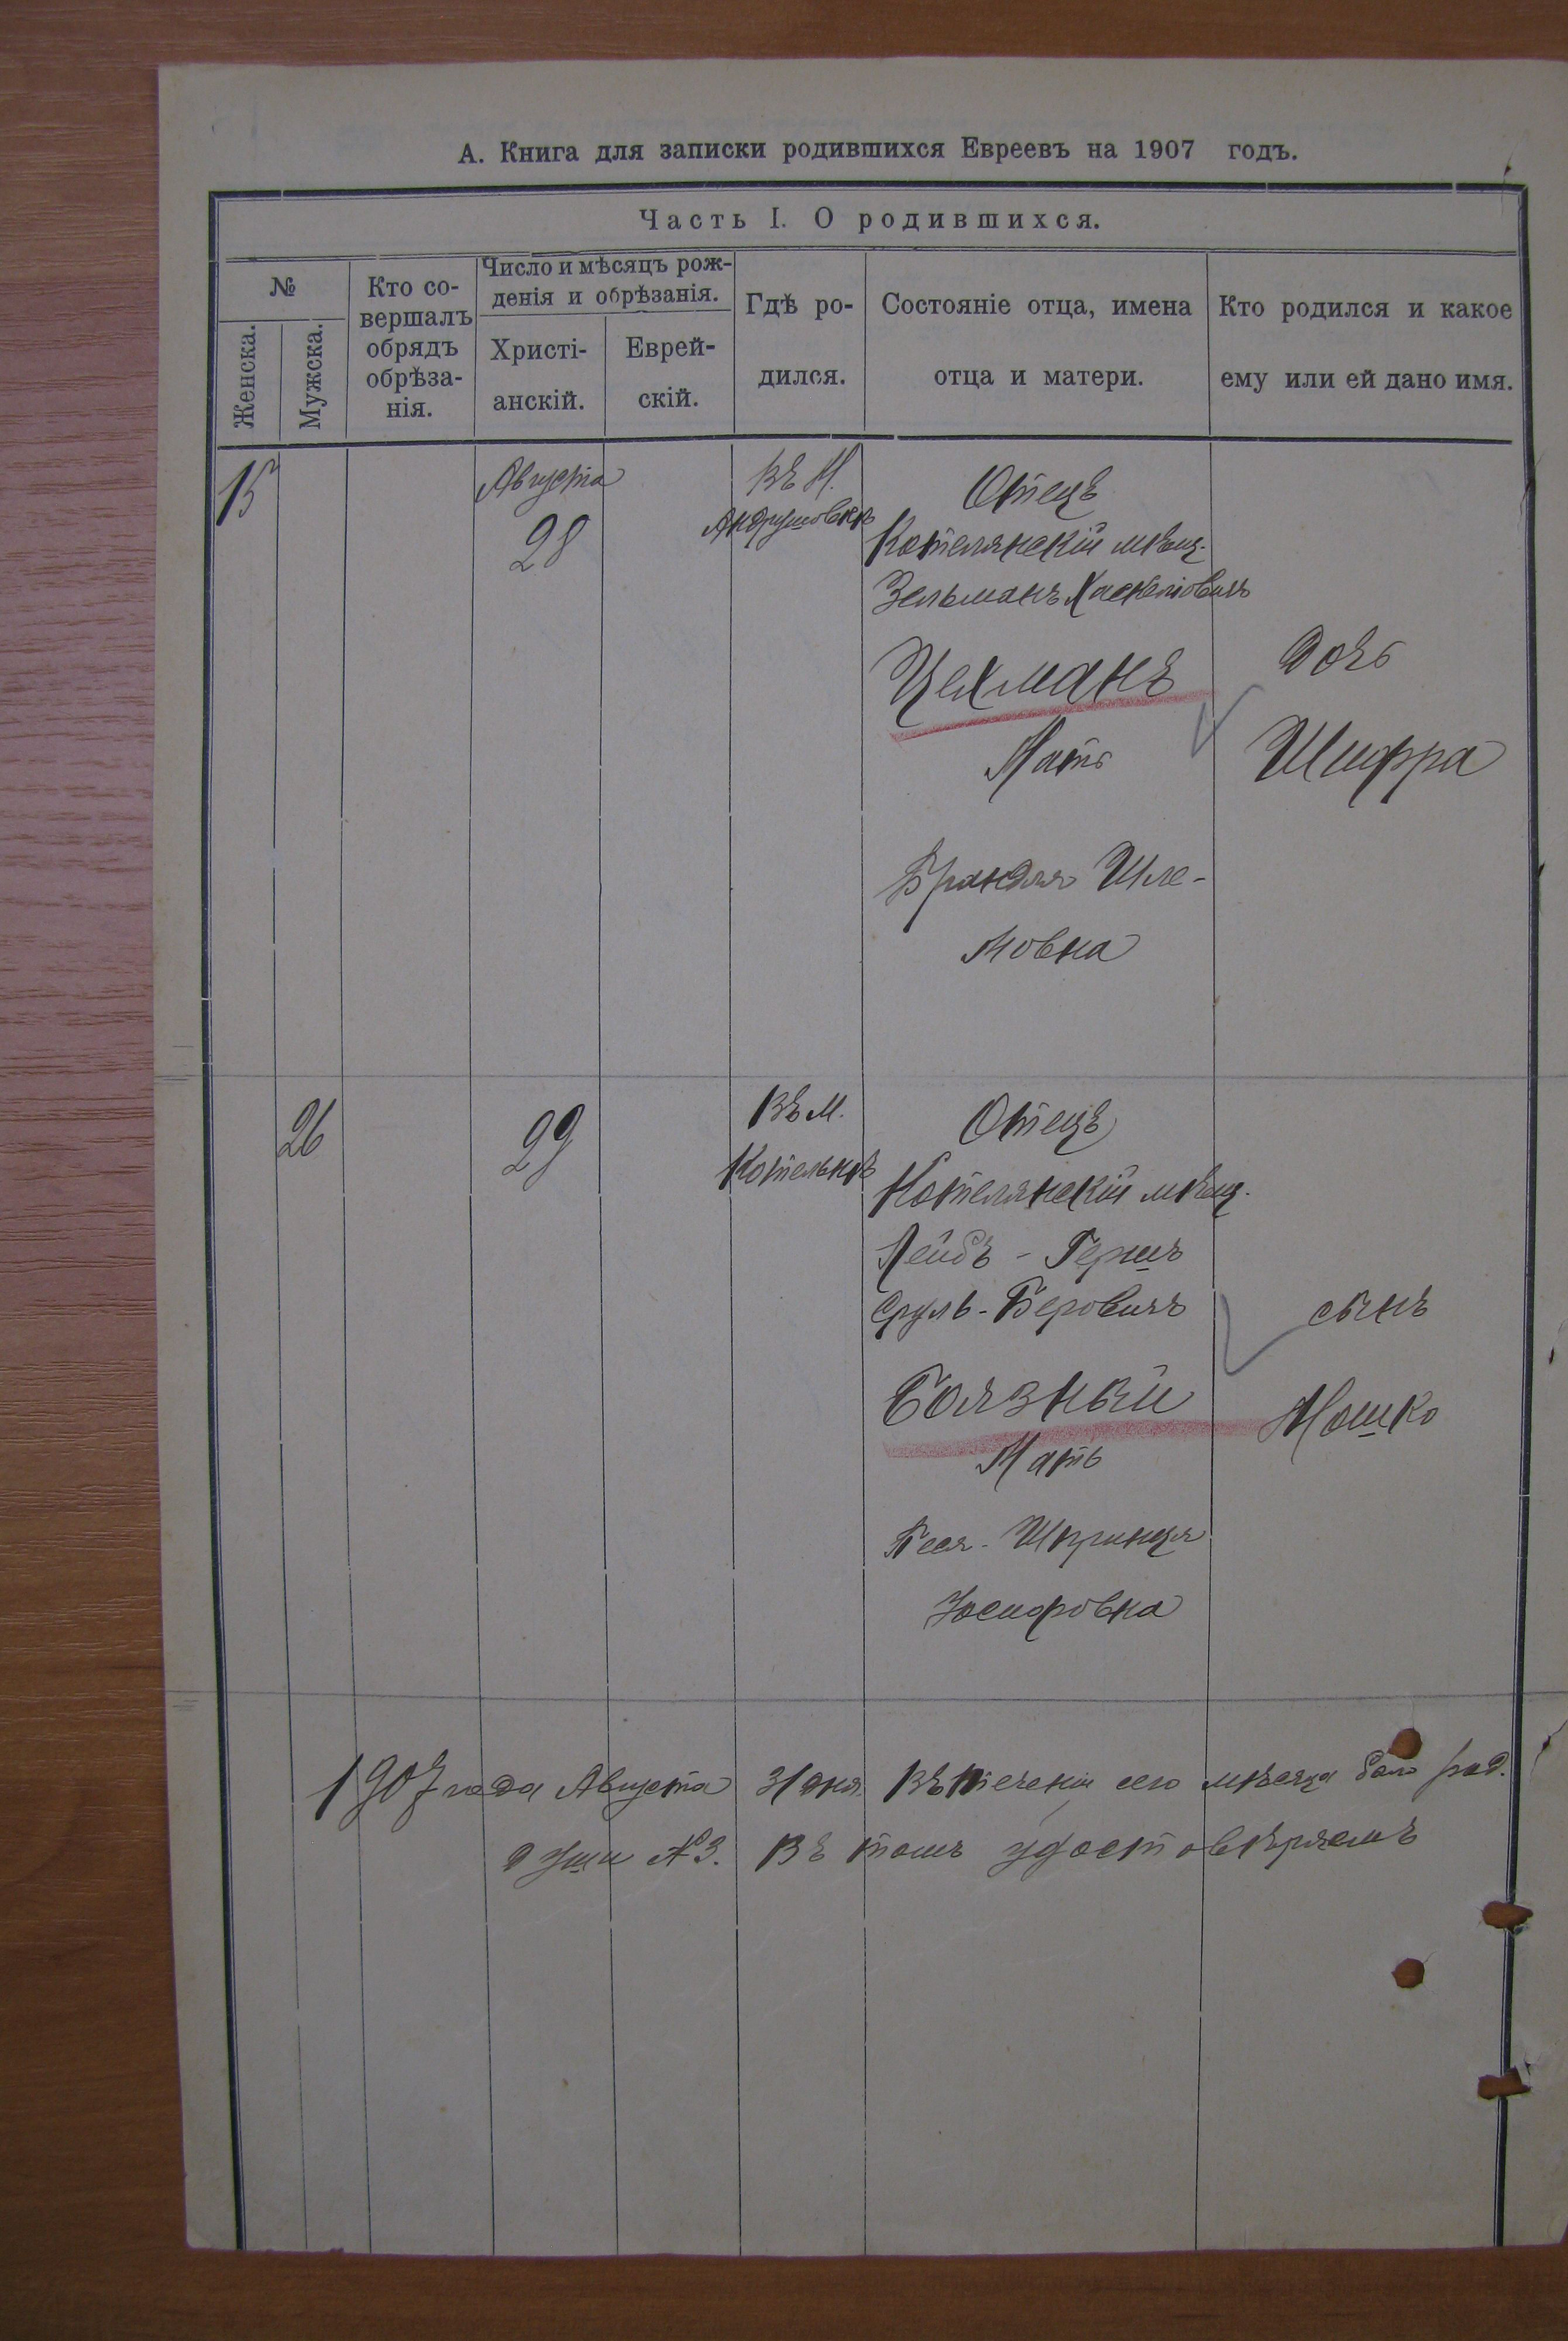 А. Книга для записки родившихся Евреевъ на 1907 годъ.
Часть I. О родившихся.
№
Женска.
Мужска.
Кто со-
вершалъ
обрядъ
обрѣза-
нія.
Число и мѣсяцъ рож-
денія и обрѣзанія.
Христі-
анскій.
Еврей-
скій.
Гдѣ ро-
дился.
Состояніе отца, имена
отца и матери.
Кто родился и какое
ему или ей дано имя.
15
Августа
28
Въ Н.
Андрушовкѣ
Отецъ
Котелянскій мѣщ.
Зельманъ Хаскелiовичъ
Цехманъ
Мать
Брандля Шле-
мовна
Дочь
Шифра
26
29
Въ м.
Котельнѣ
Отецъ
Котелянскій мѣщ.
Лейбъ - Гершъ
Сруль-Беровичъ
Боязный
Мать
Песя-Шпринця
Іосифовна
сынъ
Мошко
1907 года Августа 31 дня. Въ теченіи сего мѣсяца было род.
души № 3. Въ томъ удостовѣряемъ